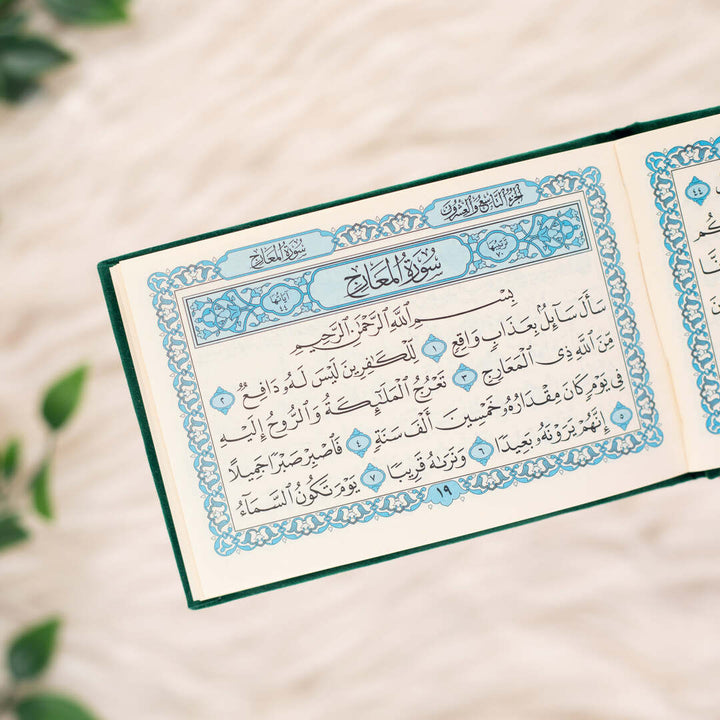 الجزء التاسع والعشرون
سورة المعارج
ترتيبها ٧٠
سُورَةُ المَعَارِجِ
آياتها ٤٤
بِسْمِ اللَّهِ الرَّحْمَٰنِ الرَّحِيمِ
سَأَلَ سَآئِلُۢ بِعَذَابٖ وَاقِعٖ ١ لِّلۡكَٰفِرِينَ لَيۡسَ لَهُۥ دَافِعٞ ٢
مِّنَ ٱللَّهِ ذِي ٱلۡمَعَارِجِ ٣ تَعۡرُجُ ٱلۡمَلَٰٓئِكَةُ وَٱلرُّوحُ إِلَيۡهِ
فِي يَوۡمٖ كَانَ مِقۡدَارُهُۥ خَمۡسِينَ أَلۡفَ سَنَةٖ ٤ فَٱصۡبِرۡ صَبۡرٗا جَمِيلًا
٥ إِنَّهُمۡ يَرَوۡنَهُۥ بَعِيدٗا ٦ وَنَرَىٰهُ قَرِيبٗا ٧ يَوۡمَ تَكُونُ ٱلسَّمَآءُ
١٩
٤٤